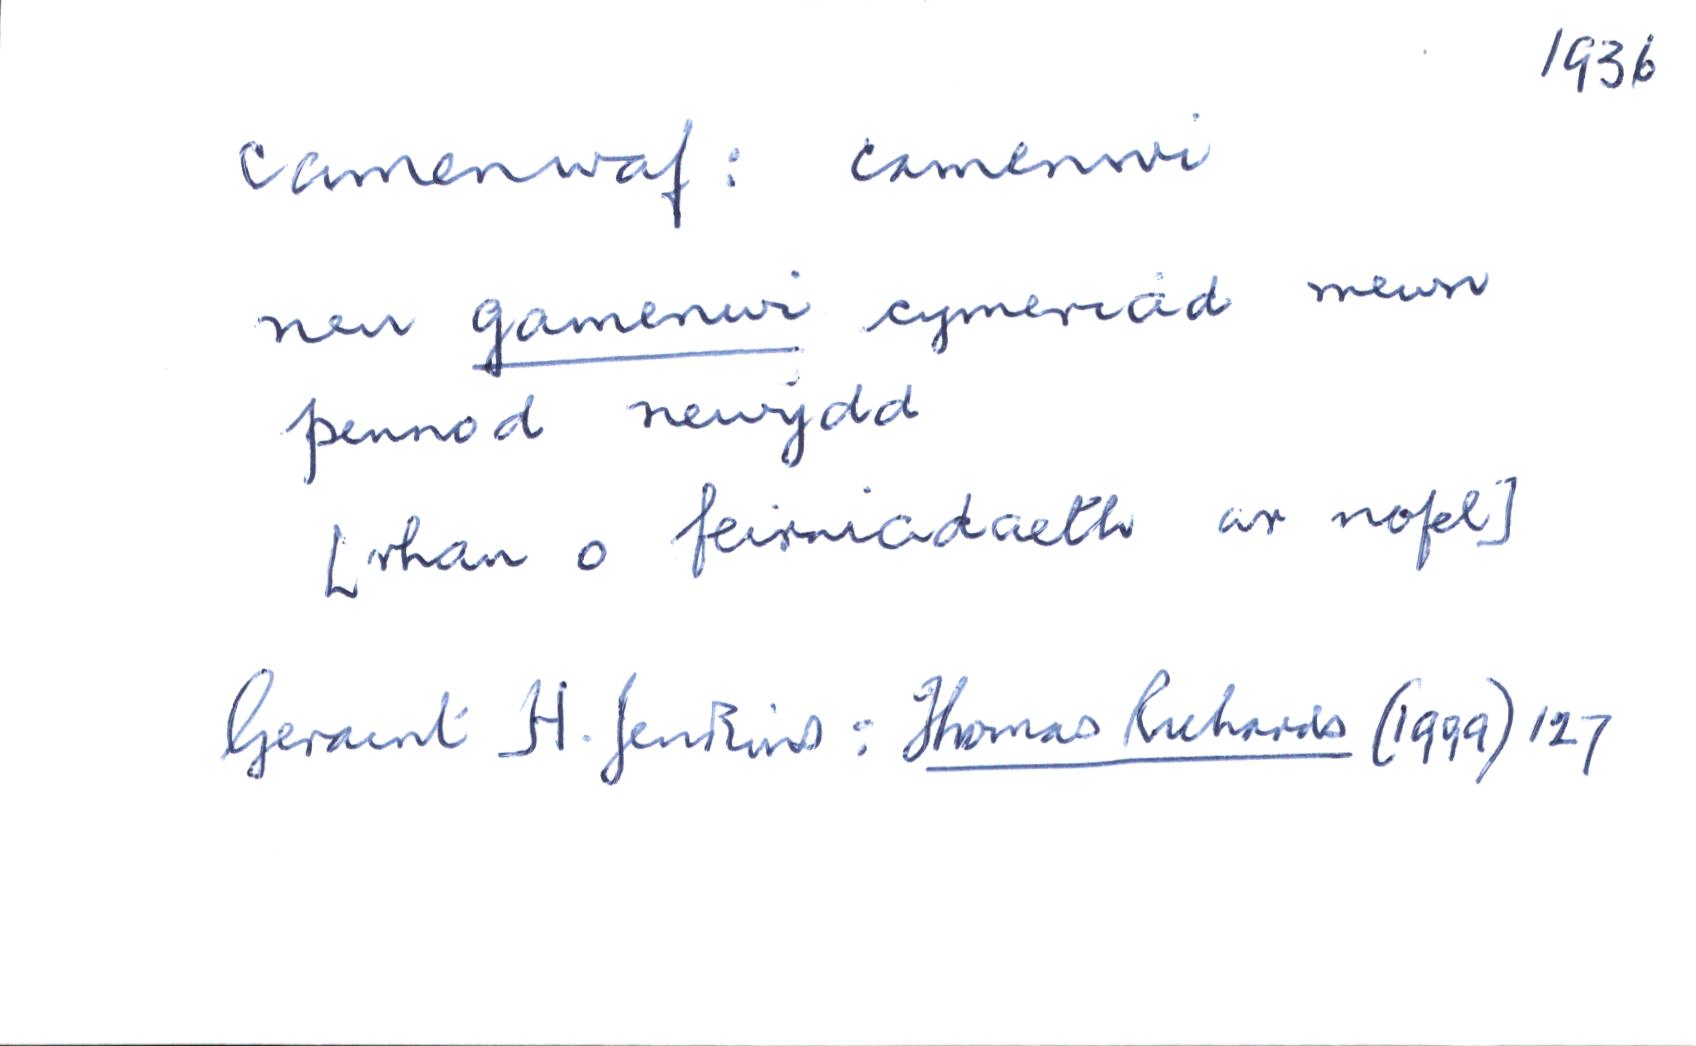 1936
camenwaf: camenwi
neu gamenwi cymeriad mewn
pennod newydd
[rhan o feirniadaeth ar nofel]
Geraint H. Jenkins: Thomas Richards (1999) 127